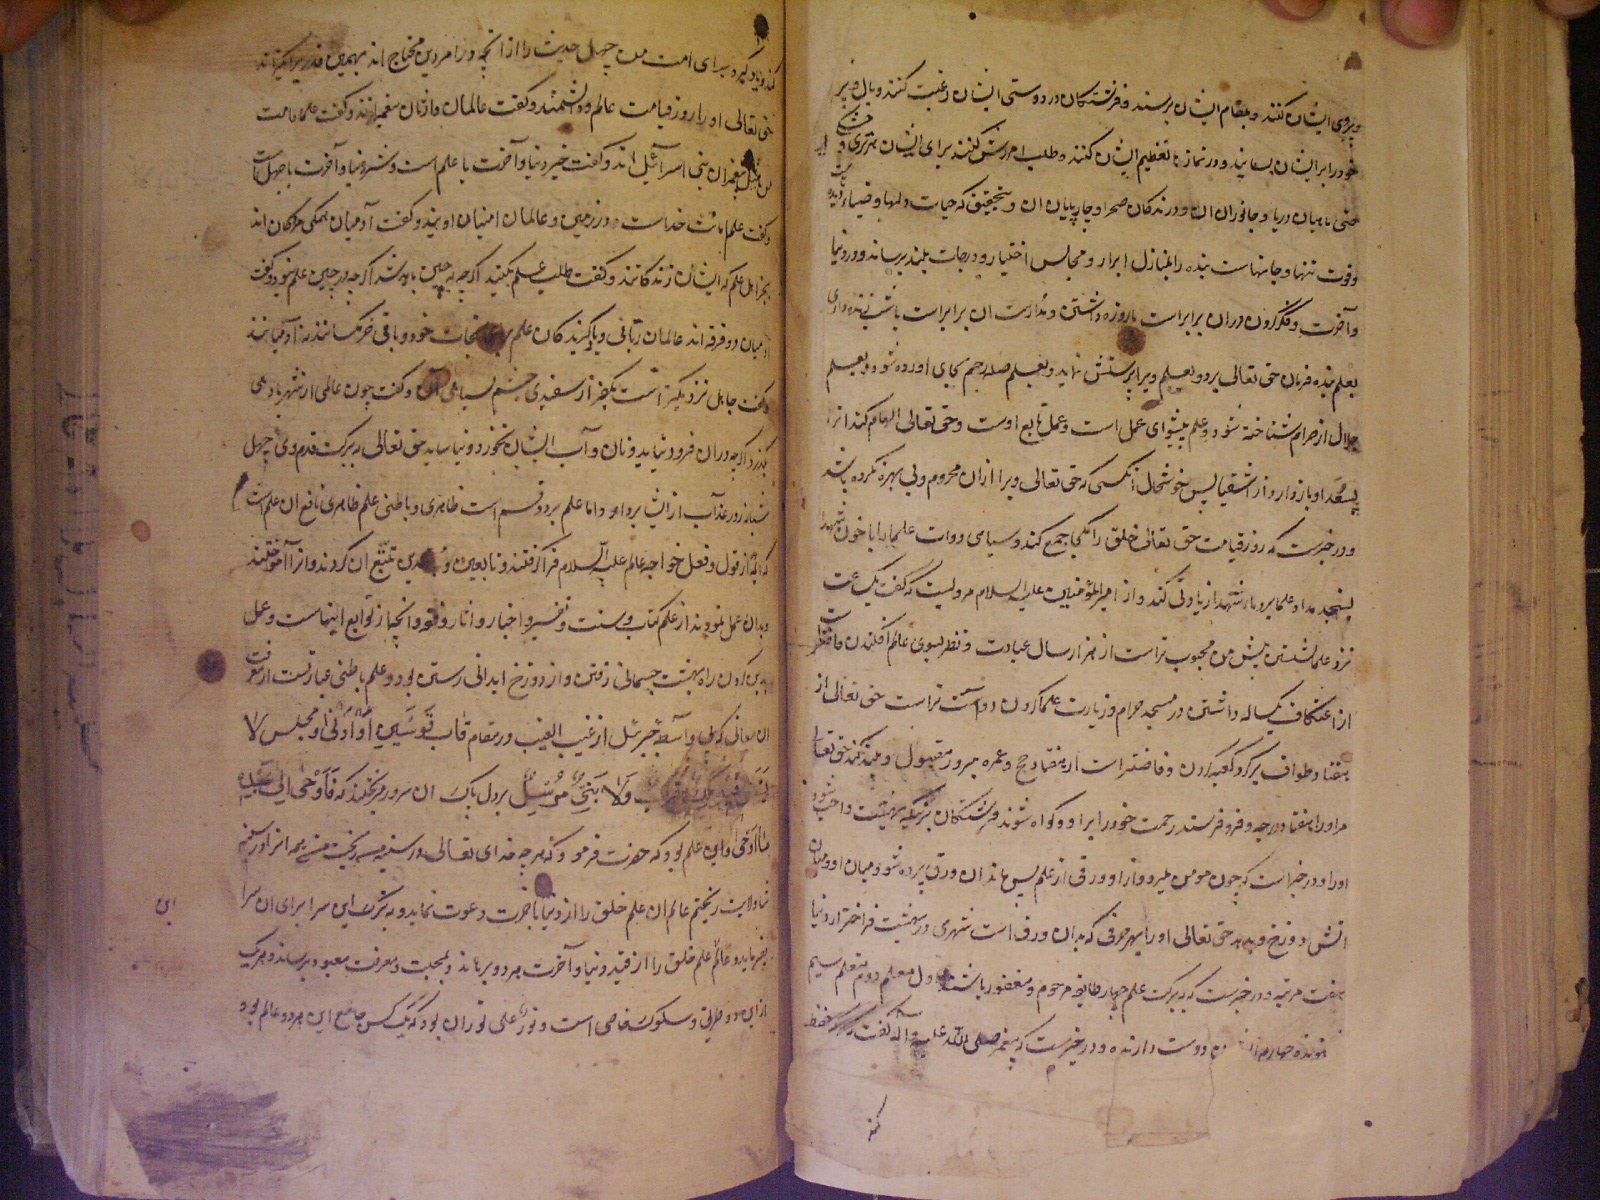 و پیروی ایشان کنند و بمقام ایشان برسند و فرشتکان در دوستی ایشان رغبت کنند و بال و پر
خود را بر ایشان بسایند و در نماز تا تعظیم ایشان کنند و طلب امرزش کنند برای ایشان هر تری و خشکی
حتی ماهیان دریا و جانوران ان و درندکان صحرا و چارپایان ان و بتحقیق که حیات دلهاء و ضیاء دیده
و قوت تنها و جانهاست بنده را بمنازل ابرار و مجالس اختیار و درجات بلند برساند و در دنیا
و آخرت و فکر کردن در ان برابر است با روزه داشتن و مدارست ان برابر است با شب زنده داری
بعلم بنده فرمان حق تعالی برد و بعلم ویرا پرستش نماید و بعلم صله رحم بجای اورده شود و بعلم
حلال از حرام شناخته شود و علم پیشوای عمل است و عمل تابع اوست و حق تعالی الهام کند انرا
بسعدا و باز دارد از اشقیا پس خوشحال انکسی که حق تعالی ویرا ازان محروم و بی بهره نکرده باشد
و در خبرست که روز قیامت حق تعالی خلق را یکجا جمع کند و سیاهی دوات علما را با خون شهدا
بسنجد مداد علما بر شهدا زیادتی کند و از امیر المؤمنین علیه السلام مرویست که گفت یک ساعت
نزد علما نشستن پیش من محبوب تر است از هزار سال عبادت و نظر بسوی عالم افکندن فاضلتر
از اعتکاف یکساله داشتن در مسجد حرام و زیارت علما کردن دوست تر است حق تعالی از
هفتاد طواف بر کرد کعبه کردن و فاضلتر است از هفتاد حج و عمره مبرور مقبول و بلند کند حق تعالی
مر او را هفتاد درجه و فرو فرستد رحمت خود را بر او و کواه شوند فرشتکان بر که بهشت واجب شود
او را و در خبر است که چون مومن بمیرد و از او ورقی از علم پس ماند ان ورق پرده شود میان او و میان
اتش دوزخ و بدهد حق تعالی او را بهر حرفی که بدان ورق است شهری در بهشت فراختر از دنیا
هفت مرتبه و در خبرست که ببرکت علم چهار طایفه مرحوم و مغفور باشند اول معلم دوم متعلم سیم
شونده چهارم دوست دارنده و در خبرست که پیغمبر صلی الله علیه و آله گفت که هر که حفظ
کند
کند و یاد گیرد برای امت من چهل حدیث را از انچه ویرا امر دین محتاج اند بهمین قدر
حق تعالی او را روز قیامت عالم و دانشمند و کفت عالمان وارثان پیغمبرانند و کفت علماء امت
من مثل پیغمبران بنی اسرائیل اند و کفت خیر دنیا و آخرت با علم است و شر دنیا و آخرت با جهل است
و کفت علم امانت خداست در زمین و عالمان امینان اویند و کفت آدمیان همکی مردکان اند
بجز اهل علم که ایشان زندکانند و کفت طلب علم بکنید اکرچه به چین باشد اکرچه در چین علم نبود و کفت
ادمیان دو فرقه اند عالمان ربانی و یادگیرندکان علم برای نجات خود و باقی خرمکسانند نه آدمیانند
و کفت جاهل نزدیکتر است بکفر از سفیدی چشم بسیاهی ان و کفت چون عالمی از شهر یا دهی
بگذرد اکرچه در ان فرود نیاید و نان و آب ایشان نخورد و نیاساید حق تعالی به برکت قدم وی چهل
شبانه روز عذاب از ایشان بردارد و اما علم بر دو قسم است ظاهری و باطنی علم ظاهری نافع ان علم است
که انچه از قول و فعل خواجه عالم علیه السلام فراگرفتند و تابعین و مجتهدین تتبع ان کردند و انرا آموختند
و بدان عمل نمودند از علم کتاب و سنت و تفسیر و اخبار و اثار و فقه و انچه از توابع اینهاست و عمل
بدین کردن راه بهشت جسمانی رفتن و از دوزخ ابدانی رستن بود و علم باطنی عبارتست از معرفت
ان معانی که بی واسطه جبرئیل از غیب الغیب در مقام قاب قوسین او ادنی از مجلس لا
و لا نبی مرسل بر دل پاک ان سرور میریختند که فاوحی الی عبده
ما اوحی و این علم بود که حضرت فرمود که هرچه خدای تعالی در سینه من ریخت من همه انرا در سینه
شاه ولایت ریختم عالم ان علم خلق را از دنیا باخرت دعوت نماید و به برکت این سرا برای ان سرا
بفرماید و عالم علم خلق را از قید دنیا و آخرت هر دو برهاند و بمحبت و معرفت معبود برساند و هر یک
از این دو طریق و سلوک خاص است و نور علی نور ان بود که یک کس جامع این هر دو عالم بود
این